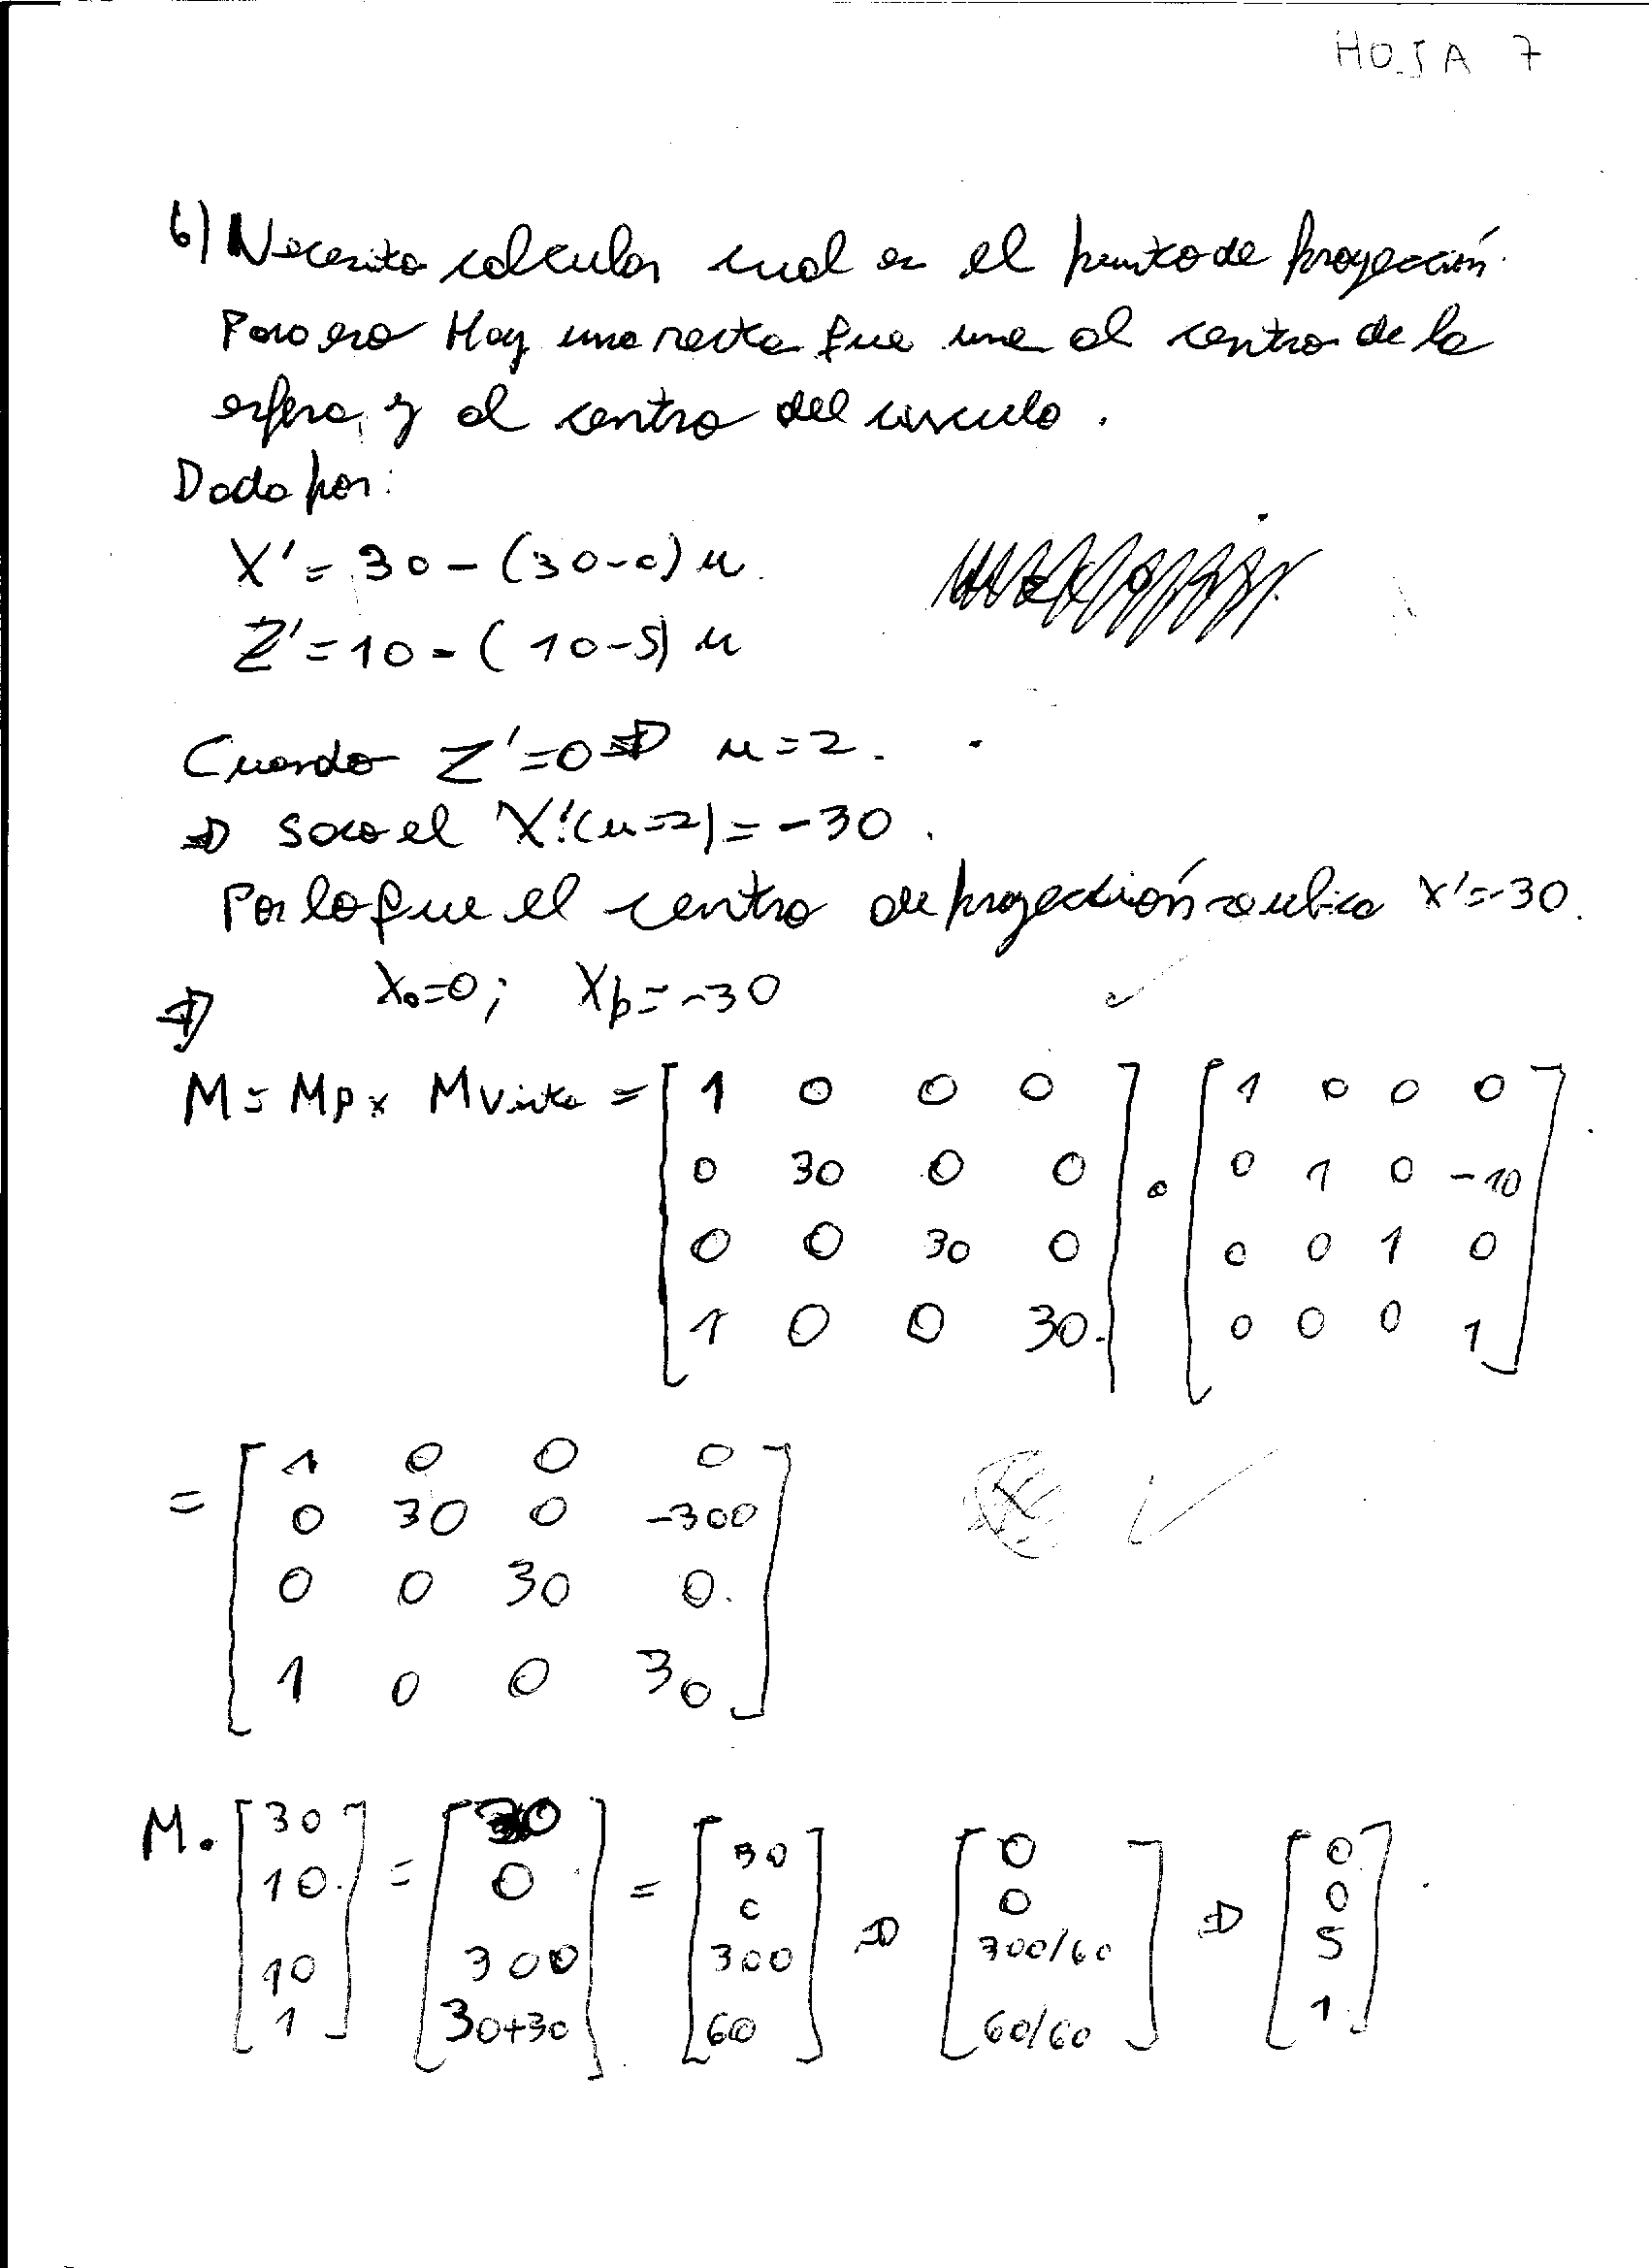 HOJA 7
6) Necesito calcular cual es el punto de proyección.
Para eso Hay una recta que une al centro de la
esfera, y al centro del circulo.
Dada por:
X' = 30 - (30-0) u
Z' = 10 - (10-5) u
Cuando Z'=0 ⇒ u=2.
⇒ saco el X'(u=2) = -30.
Por lo que el centro de proyección se ubica X'=-30.
⇒ X₀=0; Xp=-30
M = Mp x Mvista = [ 1 0 0 0 ] . [ 1 0 0 0 ]
0 30 0 0 0 1 0 -10
0 0 30 0 0 0 1 0
1 0 0 30 0 0 0 1
= [ 1 0 0 0 ]
0 30 0 -300
0 0 30 0
1 0 0 30
M. [ 30 ] = [ 30 ] = [ 30 ] ⇒ [ 0 ] ⇒ [ 0 ]
10 0 0 0 0
10 300 300 300/60 5
1 30+30 60 60/60 1